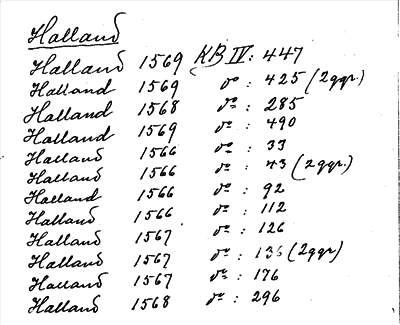 Halland
Halland 1569 KB IV: 447
Halland 1569 do : 425 (2ggr.)
Halland 1568 do : 285
Halland 1569 do : 490
Halland 1566 do : 33
Halland 1566 do : 43 (2ggr.)
Halland 1566 do : 92
Halland 1566 do : 112
Halland 1567 do : 126
Halland 1567 do : 136 (2ggr)
Halland 1567 do : 176
Halland 1568 do : 296